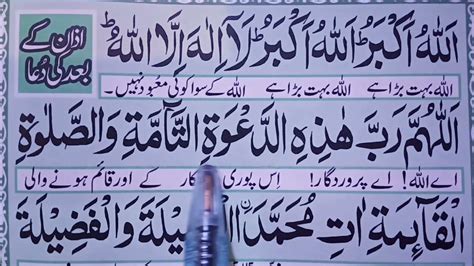 اذان کے
بعد کی دُعا
اَللّٰهُ اَكْبَرُ ؕ اَللّٰهُ اَكْبَرُ ؕ لَآ اِلٰهَ اِلَّا اللّٰهُ ؕ
اللہ بہت بڑا ہے اللہ بہت بڑا ہے اللہ کے سوا کوئی معبود نہیں۔
اَللّٰهُمَّ رَبَّ هٰذِهِ الدَّعْوَةِ التَّآمَّةِ وَالصَّلٰوةِ
اے اللہ! اے پروردگار! اِس پوری کے اور قائم ہونے والی
الْقَآئِمَةِ اٰتِ مُحَمَّدَ وَالْفَضِيْلَةَ